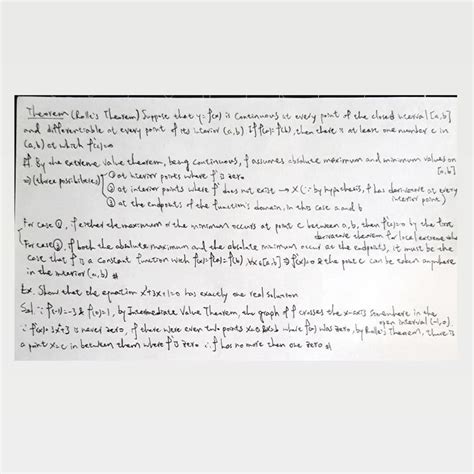 Theorem (Rolle's Theorem) Suppose that y=f(x) is continuous at every point of the closed interval [a,b]
and differentiable at every point of its interior (a,b) If f(a)=f(b), then there is at least one number c in
(a,b) at which f'(c)=0
pf. By the extreme value theorem, being continuous, f assumes absolute maximum and minimum values on [a,b]
⇒ (three possibilities) ① at interior points where f' is zero
② at interior points where f' does not exist → X (∵ by hypothesis, f has derivative at every interior point)
③ at the endpoints of the function's domain, in this case a and b
For case ①, if either the maximum or the minimum occurs at point c between a, b, then f'(c)=0 by the first derivative theorem for local extreme
For case ③, if both the absolute maximum and the absolute minimum occur at the endpoints, it must be the
case that f is a constant function with f(x)=f(a)=f(b), ∀x∈[a,b] ⇒ f'(x)=0 & the point c can be taken anywhere
in the interior (a,b) #
Ex. Show that the equation x³+3x+1=0 has exactly one real solution
Sol ∵ f(-1)=-3 & f(0)=1, by Intermediate Value Theorem, the graph of f crosses the x-axis somewhere in the open interval (-1,0)
∵ f'(x)=3x²+3 is never zero, if there were even two points x=a & x=b where f(x) was zero, by Rolle's Theorem, there is
a point x=c in between them where f' is zero ∴ f has no more than one zero #